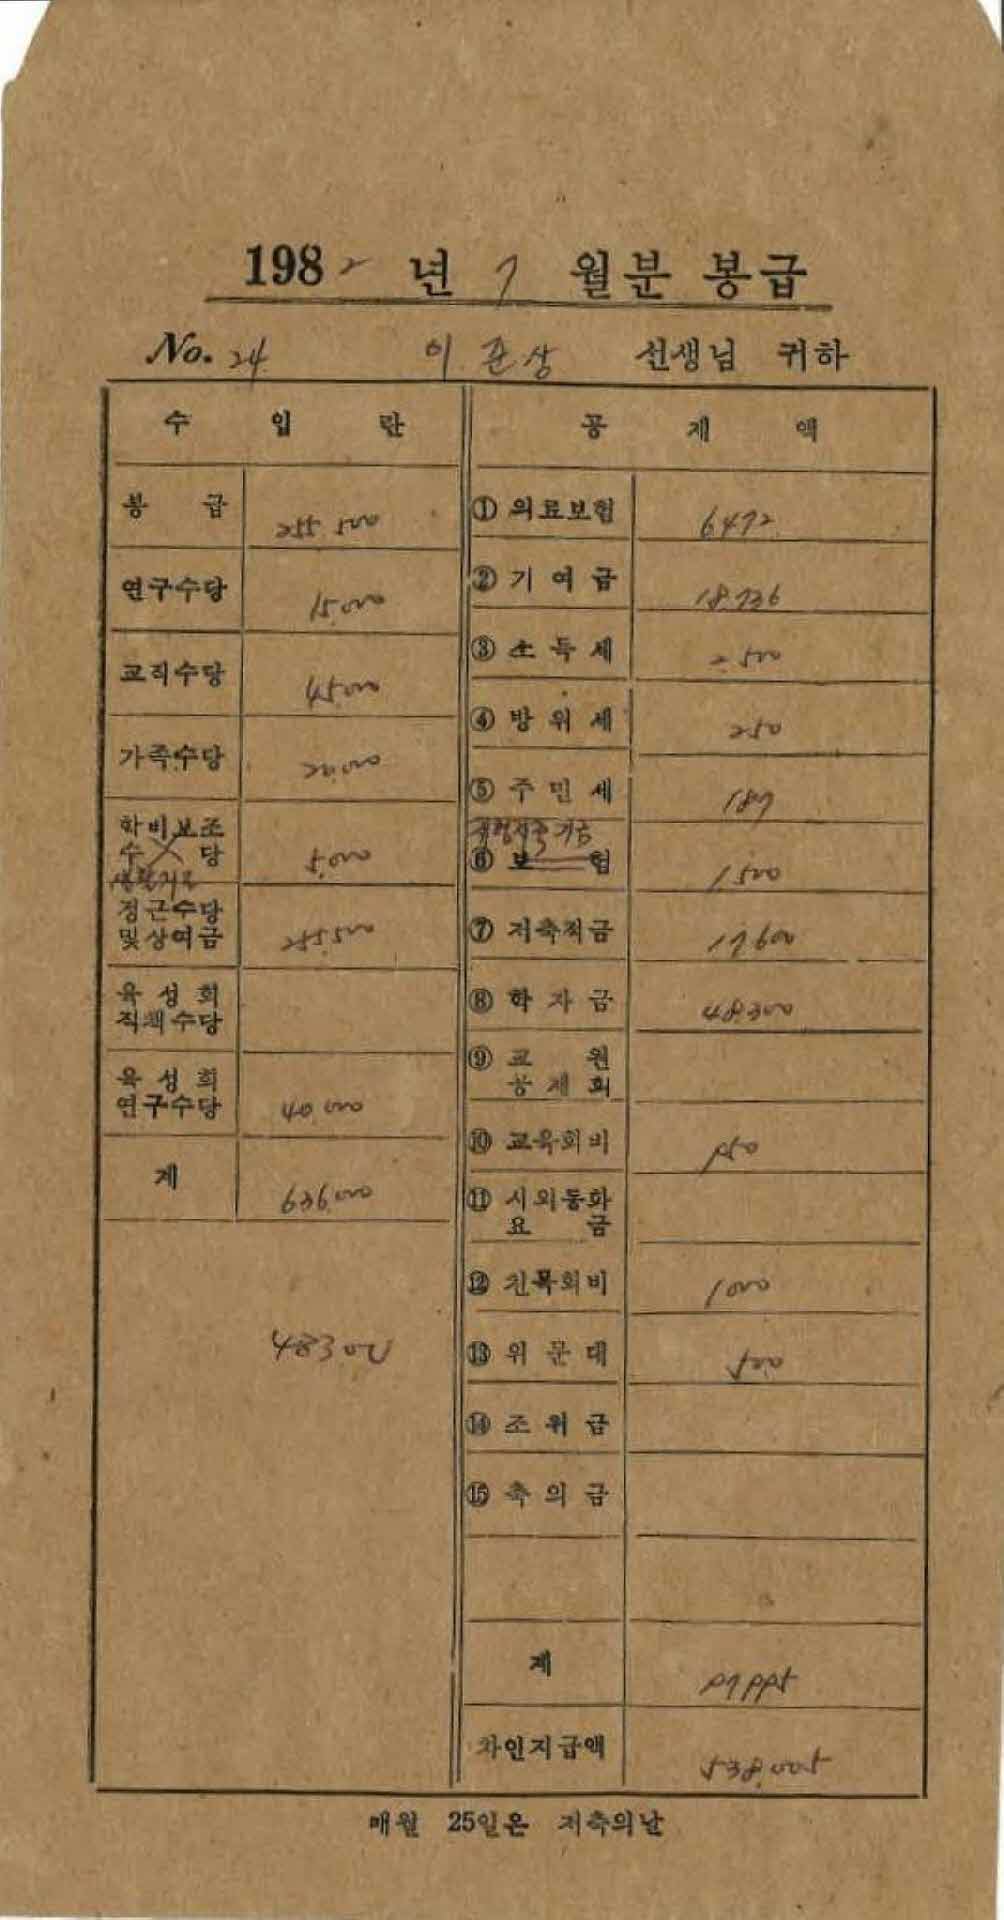 1982 년 7 월분 봉급
No. 24 이 준상 선생님 귀하
수 입 란
봉 급 255.500
연구수당 15.000
교직수당 45.000
가족수당 20.000
학비보조
수 당 5.000
정근수당
및상여금 255.500
육성회
직책수당
육성회
연구수당 40.000
계 636.000
48300
공 제 액
① 의료보험 6472
② 기여금 18.736
③ 소득세 2.500
④ 방위세 250
⑤ 주민세 187
기금
⑥ 보 험 1.500
⑦ 저축적금 17.600
⑧ 학자금 48.300
⑨ 교 원
공제회
⑩ 교육회비 950
⑪ 시외통화
요 금
⑫ 친목회비 1000
⑬ 위문대 500
⑭ 조위금
⑮ 축의금
계 97995
차인지급액 538.005
매월 25일은 저축의날